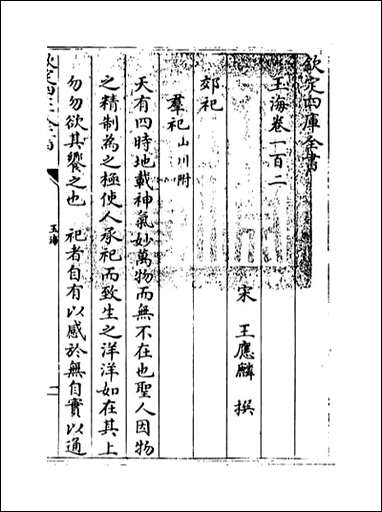 欽定四庫全書
玉海卷一百二
宋 王應麟 撰
郊祀
羣祀山川附
天有四時地載神氣妙萬物而無不在也聖人因物
之精制為之極使人承祀而致生之洋洋如在其上
勿勿欲其饗之也 祀者自有以感於無自實以通
玉海